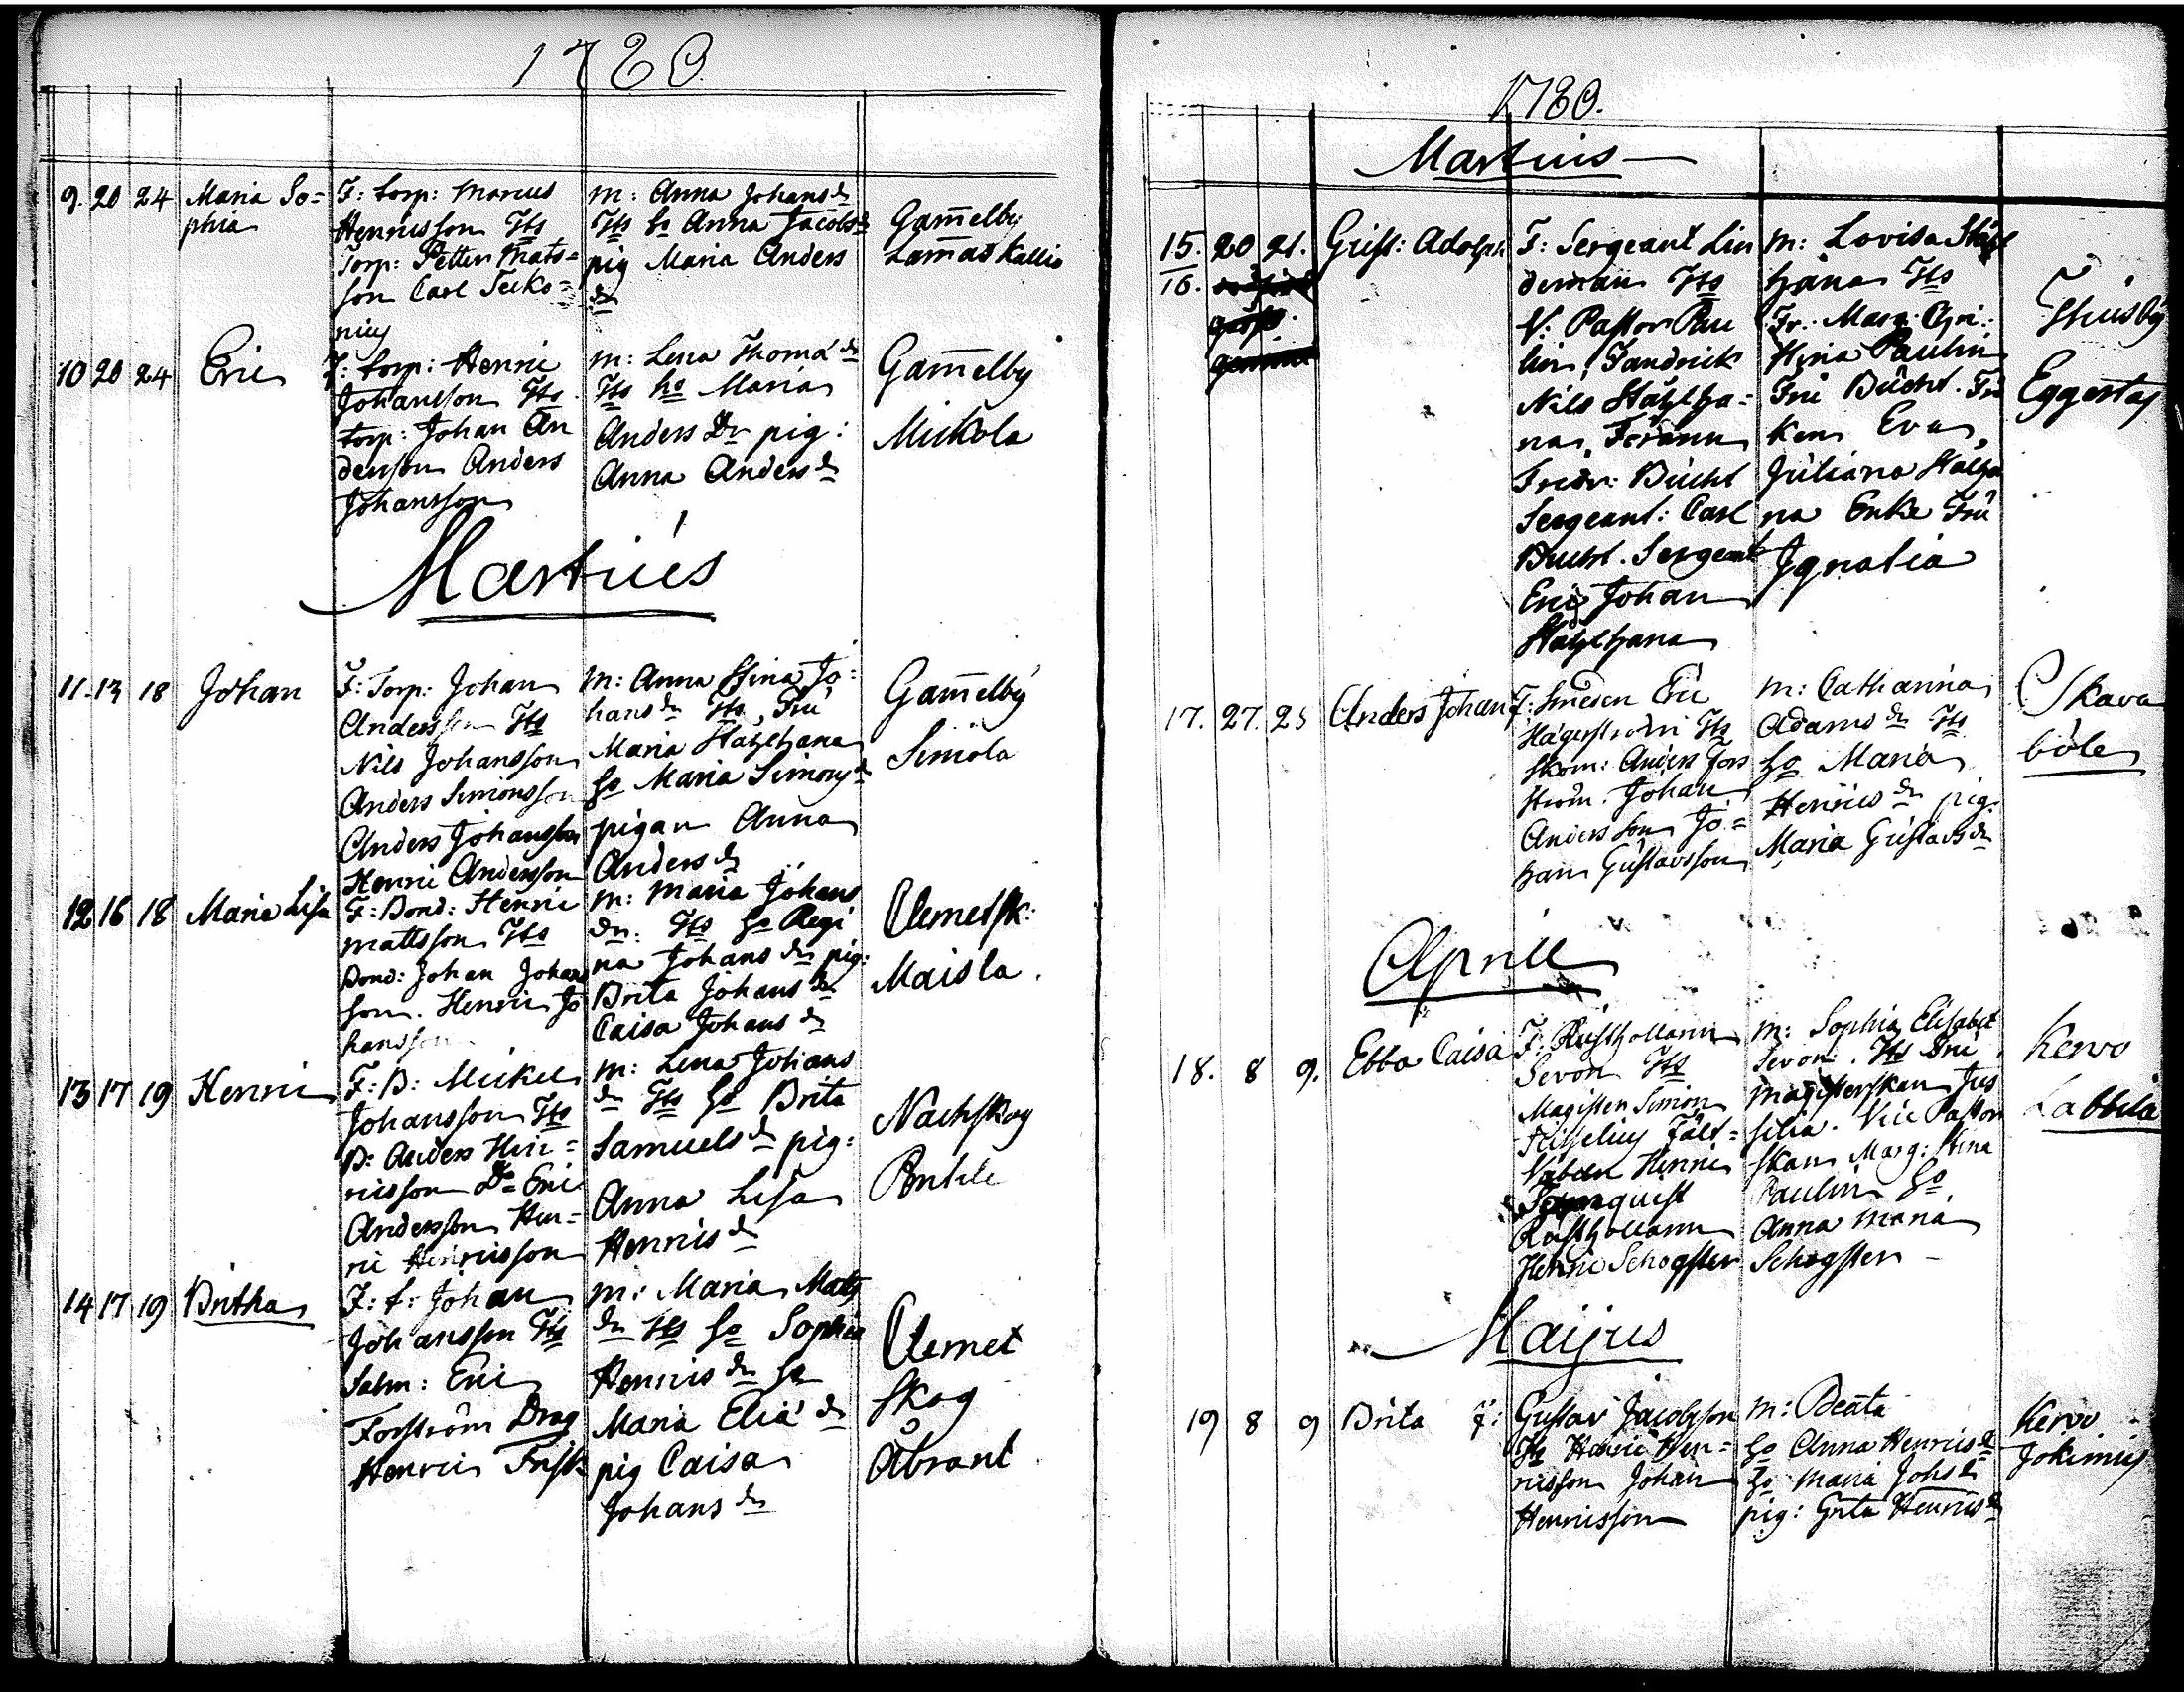 1780.
9. 20 24 Maria So=
phia
F: torp: Marcus
Henricsson Tts
Torp: Petter Mats=
son Carl
m: Anna Johans dr
Tts ho Anna Jacobs dr
pig Maria Anders
dr
Gam̅elby
Lam̅askallio
10 20 24 Eric
F: torp: Henric
Johansson Tts
torp: Johan An
dersson Anders
Johansson
m: Lena Thomæ dr
Tts ho Maria
Anders Dr pig:
Anna Anders dr
Gam̅elby
Mickola
Martius
11. 13 18 Johan
F: Torp: Johan
Andersson Tts
Nils Johansson
Anders Simonsson
Anders Johansson
Henric Andersson
m: Anna Stina Jo:
hans dr Tts, Fru
Maria Stahlhana
ho Maria Simons dr
pigan Anna
Anders dr
Gam̅elby
Simola
12 16 18 Maria Lisa
F: Bond: Henric
Mattsson Tts
Bond: Johan Johans
son. Henric Jo
hansson
m: Maria Johans
dr. Tts ho Regi
na Johans dr pig:
Brita Johans dr
Caisa Johans dr
Clemetsk:
Maisla.
13 17 19 Henric
F: B: Mickel
Johansson Tts
B: Anders Hen=
ricsson Do Eric
Andersson Hen=
ric Henricsson
m: Lena Johans
dr Tts ho Brita
Samuels dr pig:
Anna Lisa
Henrics dr
Nachskog
14 17 19 Britha
F: t: Johan
Johansson Tts
Salm: Eric
Forström Drag
Henric Frisk
m: Maria Mats
dr Tts ho Sophia
Henrics dr ho
Maria Eliæ dr
pig Caisa
Johans dr
Clemet
skog
Åbrant
1780.
Martius
15. 20 21. Gust: Adolph
16.
F: Sergeant Lin
deman Tts
V: Pastor Pau
lin, Fandrick
Nils Stahlha=
na,
Fredr: Bucht
Sergeant: Carl
Bucht. Sergeant
Eric Johan
Stahlhana
m: Lovisa Stahl
hana Tts
Fr. Marg: Chri:
stina Paulin
Fru Bucht. Frö
ken Eva
Juliana Stalha
na Enke Fru
Ignatia
Thusby
Eggertas
17. 27. 28 Anders Johan
F: Smeden Eric
Hagerström Tts
Skom: Anders Fors
ström. Johan
Andersson Jo=
han Gustavsson
m: Catharina
Adams dr Tts
ho Maria
Henrics dr pig.
Maria Gustavs dr
Skava
böle
Aprill
18. 8 9. Ebba Caisa
F: Rusthollarn
Sevon Tts
Magister Simon
Fält=
väbeln Henric
Rusthollarn
Henric Schogster
m: Sophia Elisabet
Sevon. Tts Fru
Magisterskan Jus
silia. Vice Pastor
skan Marg: Stina
Paulin ho
Anna Maria
Schogster
Kervo
Labbila
Maijus
19 8 9 Brita
F: Gustav Jacobsson
Tts Henric Hen=
ricsson Johan
Henricsson
m: Beata
ho Anna Henrics dr
ho Maria Johs dr
pig: Greta Henrics dr
Kervo
Jokimies